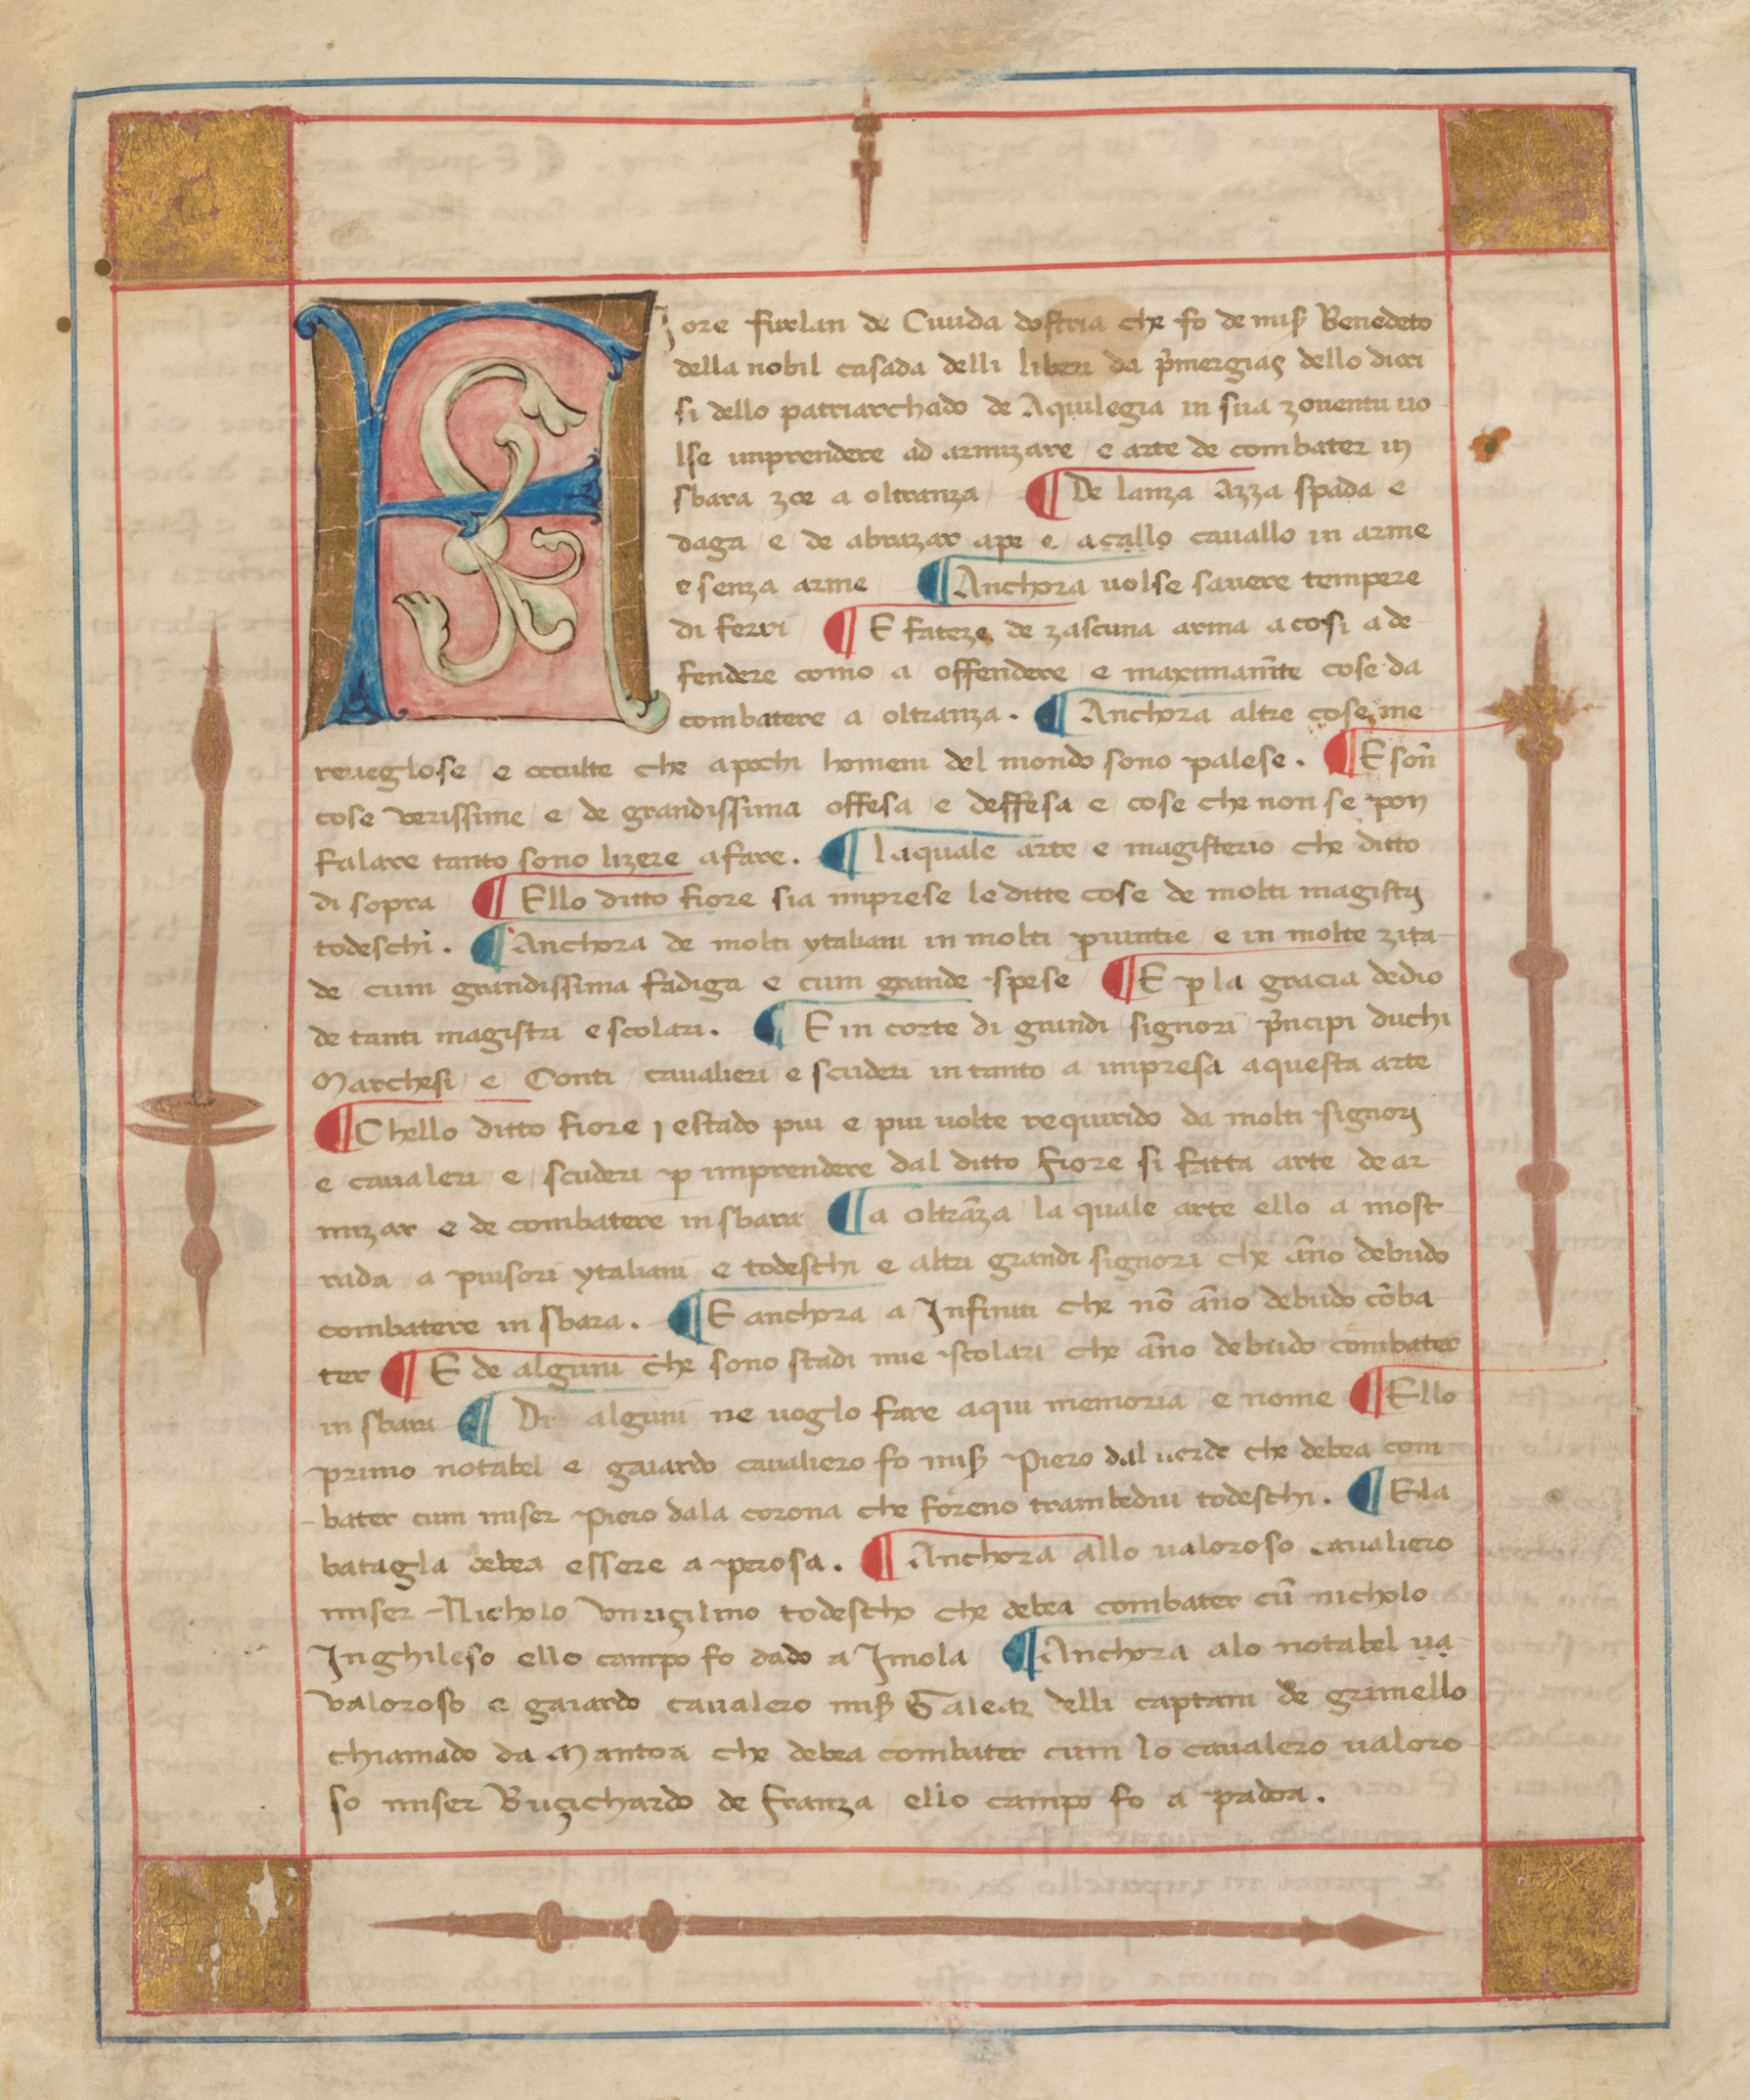 Fiore furlan de Ciuida dostria che fo de mis Benedeto
della nobil casada delli liberi da p̄mergias dello dioci
si dello patriarchado de Aquilegia in sua zouentu uo
lse imprendere ad armizare e arte de combater in
sbara zoe a oltranza ¶ De lanza Azza spada e
daga e de abrazar ape e acallo cauallo in arme
e senza arme ¶ Anchora uolse sauere tempere
di ferri ¶ E fateze de zascuna arma a cosi a de
fendere como a offendere e maximam̄te cose da
combatere a oltranza. ¶ Anchora altre cose me
reueglose e occulte che apochi homeni del mondo sono palese. ¶ E son̄
cose verissime e de grandissima offesa e deffesa e cose che non se pon
falare tanto sono lizere afare. ¶ laquale arte e magisterio che ditto
di sopra ¶ Ello ditto fiore sia imprese le ditte cose de molti magistri
todeschi. ¶ Anchora de molti ytaliani in molti ꝓuintie e in molte zita
de cum grandissima fadiga e cum grande spese ¶ E ꝑ la gracia dedio
de tanti magistri e scolari. ¶ E in corte di grandi signori p̄ncipi duchi
Marchesi e Conti cauallieri e scuderi in tanto a impresa aquesta arte
¶ Chello ditto fiore i estado piu e piu uolte requirido da molti signori
e caualeri e scuderi ꝑ imprendere dal ditto fiore si fatta arte de ar
mizar e de combatere in sbara ¶ a oltrāza la quale arte ello a most
rada a piusori ytaliani e todeschi e altri grandi signori che āno debudo
combatere in sbara. ¶ E anchora a Infiniti che nō āno debudo cōba
ter ¶ E de alguni che sono stadi mie scolari che āno debudo combater
in sbara ¶ Di alguni ne uoglo fare aqui memoria e nome ¶ Ello
primo notabel e gaiardo caualiero fo mis Piero dal uerde che debea com
bater cum miser Piero dala corona che foreno trambedui todeschi. ¶ E la
batagla debea essere a perosa. ¶ Anchora allo ualoroso caualiero
miser Nicholo vnriçilino todescho che debea combater cū nicholo
Inghileso ello campo fo dado a Imola ¶ Anchora alo notabel ua
valoroso e gaiardo caualero mis Galeaz delli captani de grimello
chiamado da Mantoa che debea combater cum lo caualero ualoro
so miser Buçichardo de franza ello campo fo a padoa.